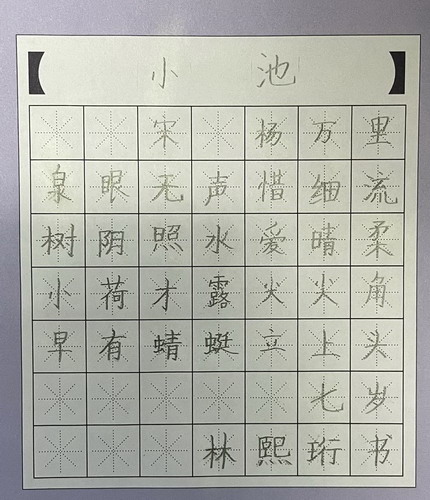 小池
宋 杨万里
泉眼无声惜细流
树阴照水爱晴柔
小荷才露尖尖角
早有蜻蜓立上头
七岁
林熙珩书